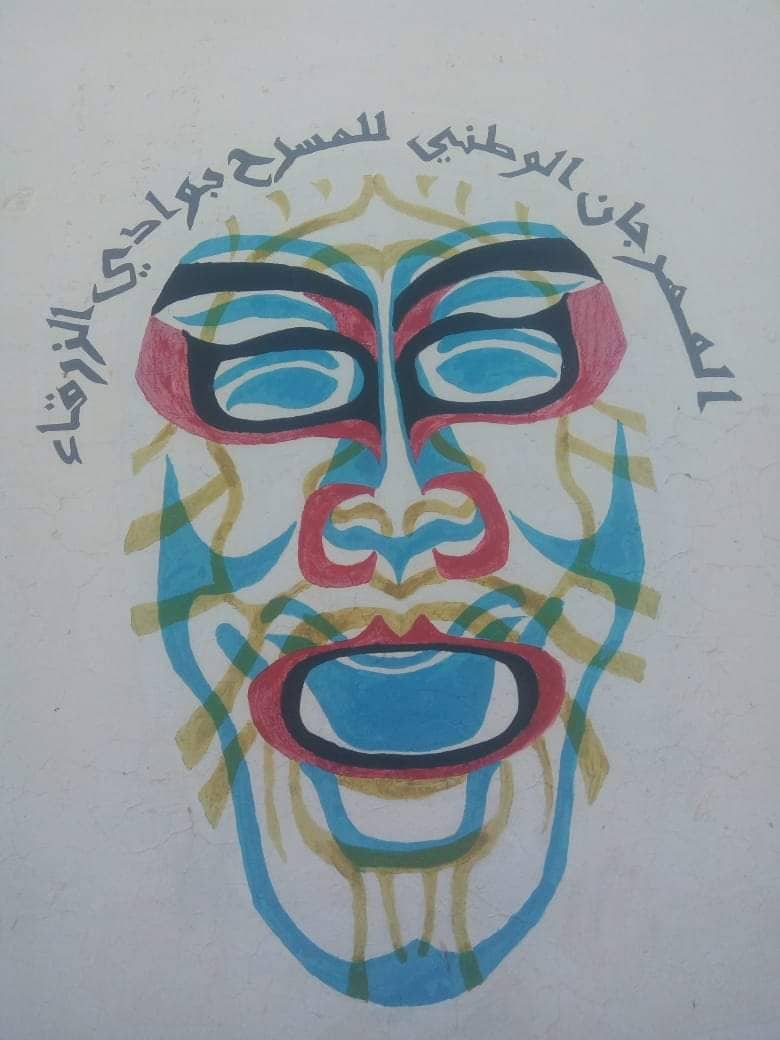 المهرجان الوطني للمسرح بوادي الزرقاء